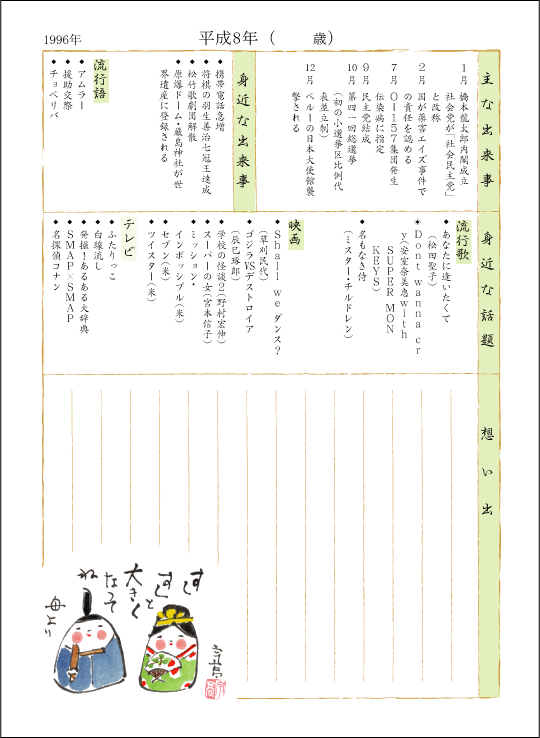 1996年
平成8年（　　歳）
主な出来事
1月 橋本龍太郎内閣成立
社会党が「社会民主党」
と改称
2月 国が薬害エイズ事件で
の責任を認める
7月 O157集団発生
伝染病に指定
9月 民主党結成
10月 第四一回総選挙
（初の小選挙区比例代
表並立制）
12月 ペルーの日本大使館襲
撃される
身近な出来事
◆携帯電話急増
◆将棋の羽生善治七冠王達成
◆松竹歌劇団解散
◆原爆ドーム・厳島神社が世
界遺産に登録される
流行語
◆アムラー
◆援助交際
◆チョベリバ
身近な話題
流行歌
◆あなたに逢いたくて
（松田聖子）
◆Dont wanna cr
y（安室奈美恵with
SUPER MON
KEYS）
◆名もなき侍
（ミスター・チルドレン）
映画
◆Shall we ダンス？
（草刈民代）
◆ゴジラVSデストロイア
（辰巳琢郎）
◆学校の怪談2（野村宏伸）
◆スーパーの女（宮本信子）
◆ミッション・
インポッシブル（米）
◆セブン（米）
◆ツイスター（米）
テレビ
◆ふたりっこ
◆白線流し
◆発掘！あるある大辞典
◆SMAP×SMAP
◆名探偵コナン
想い出
すく
すくと
大きく
なって
ね
母より